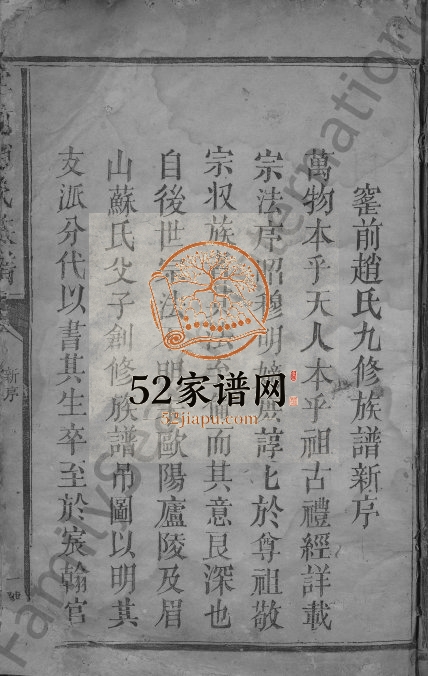 窰前趙氏九修族譜新序
萬物本乎天人本乎祖古禮經詳載
宗法序昭穆明嫡庶諄匕於尊祖敬
宗収族者其法至而其意良深也
自後世宗法不明歐陽廬陵及眉
山蘇氏父子創修族譜吊圖以明其
支派分代以書其生卒至於宸翰官
新序
一
52家谱网
52jiapu.com
FamilySearch International